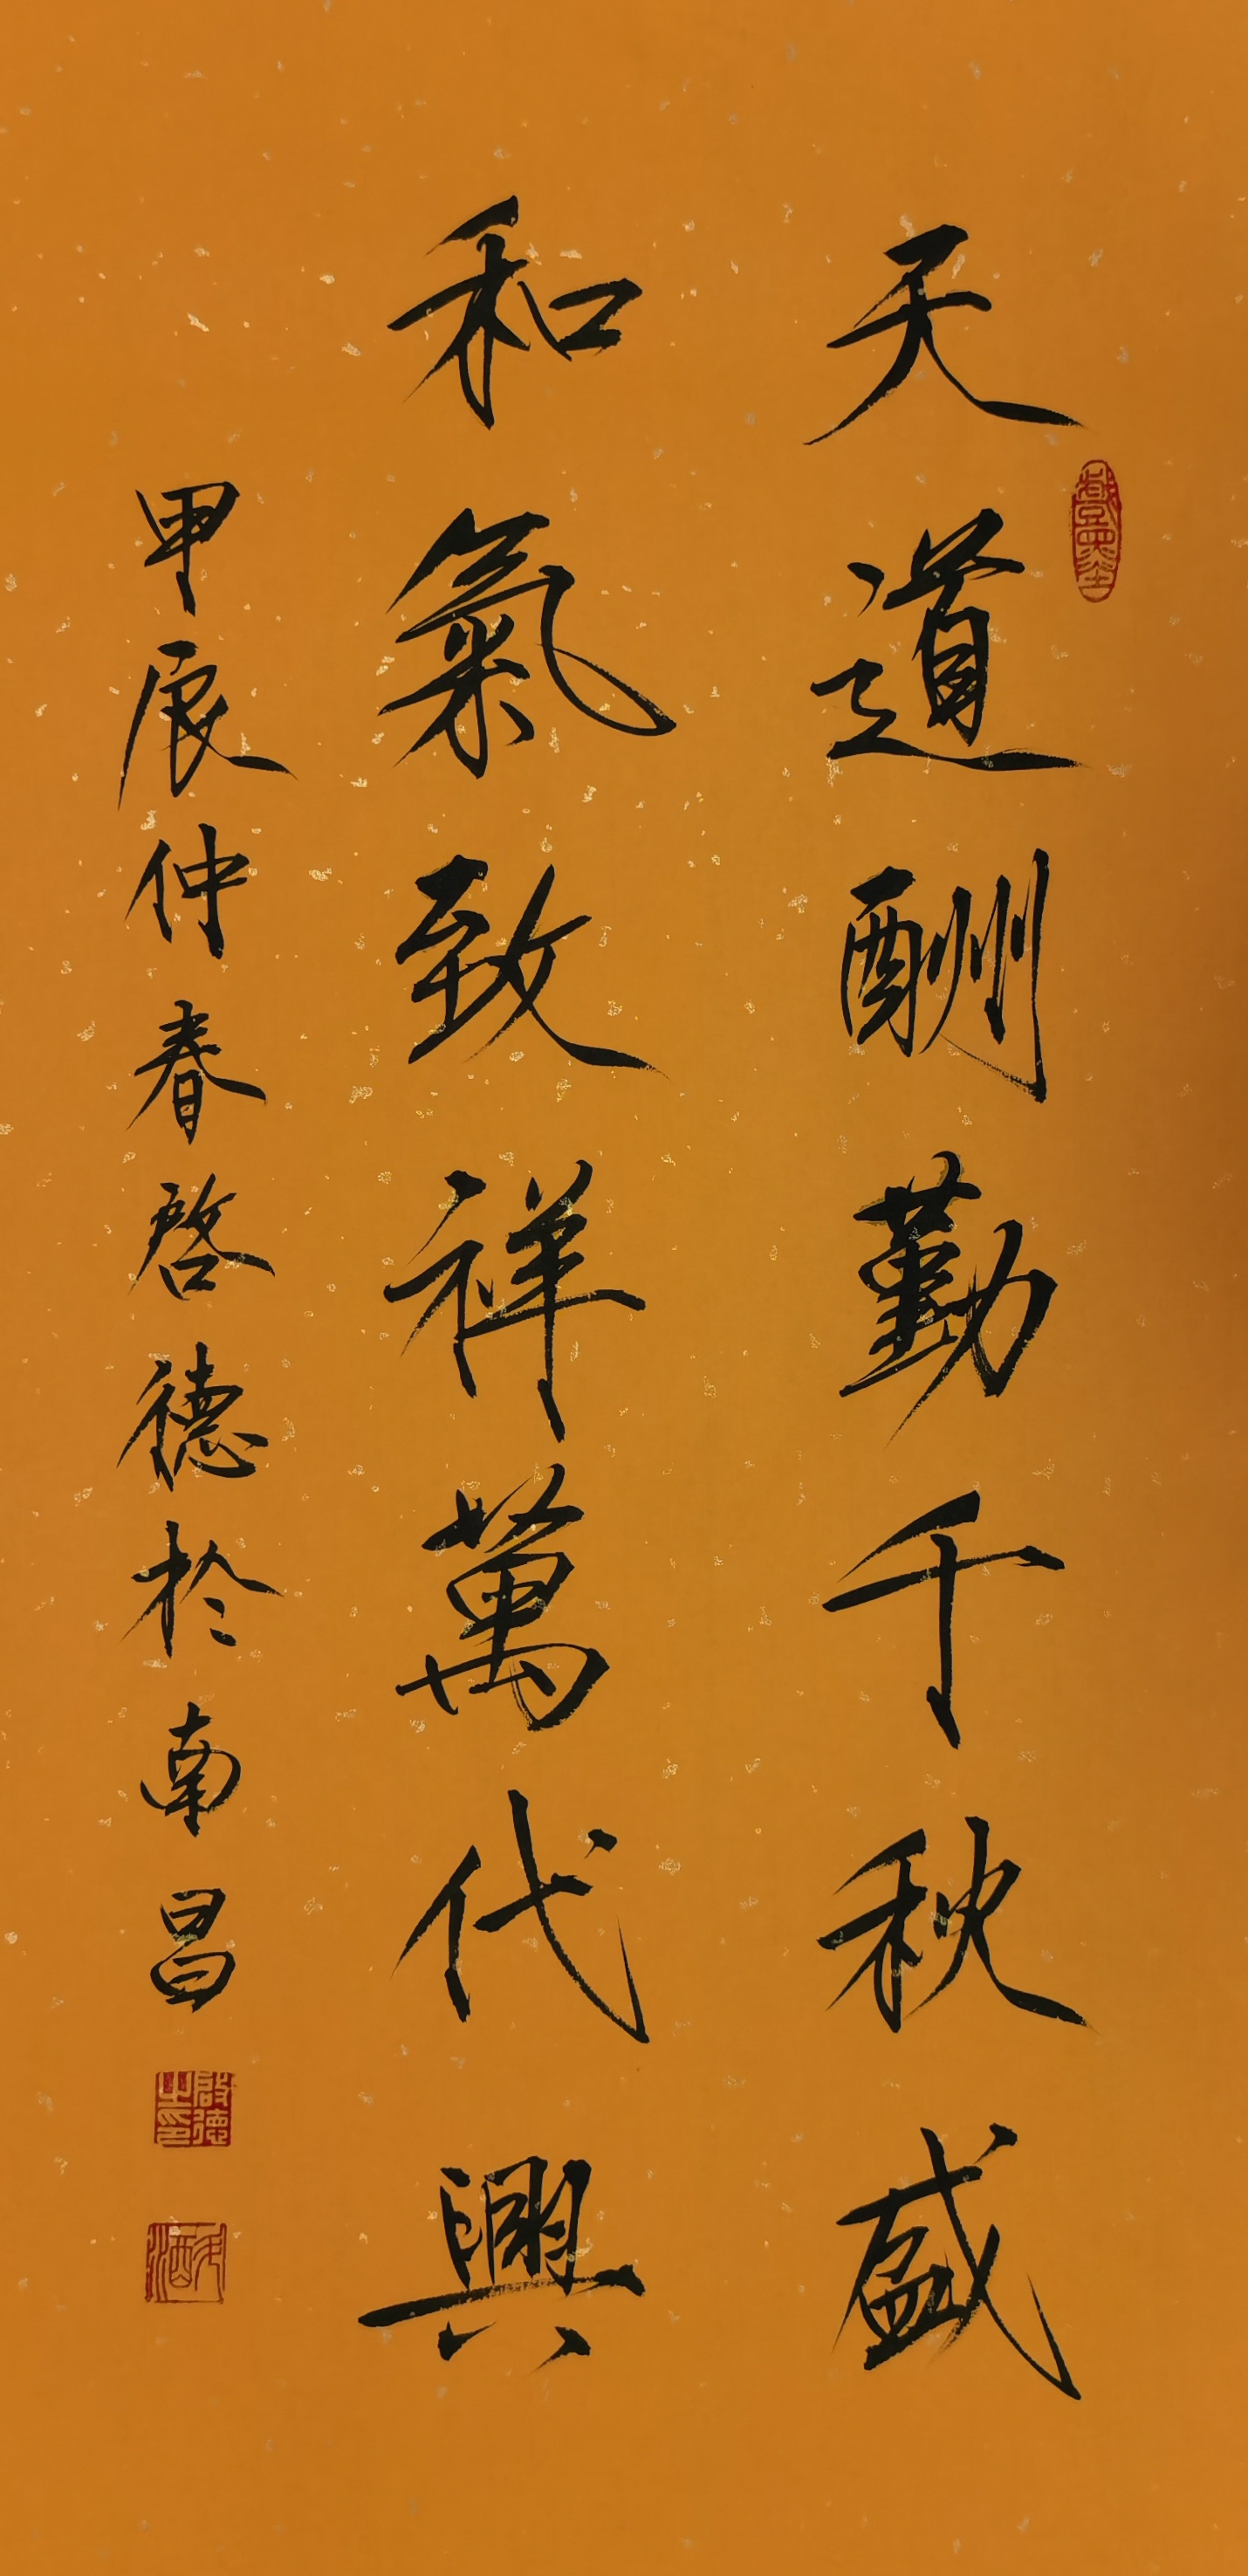 天道酬勤千秋盛
和氣致祥萬代興
甲辰仲春啓德於南昌
啟德之印